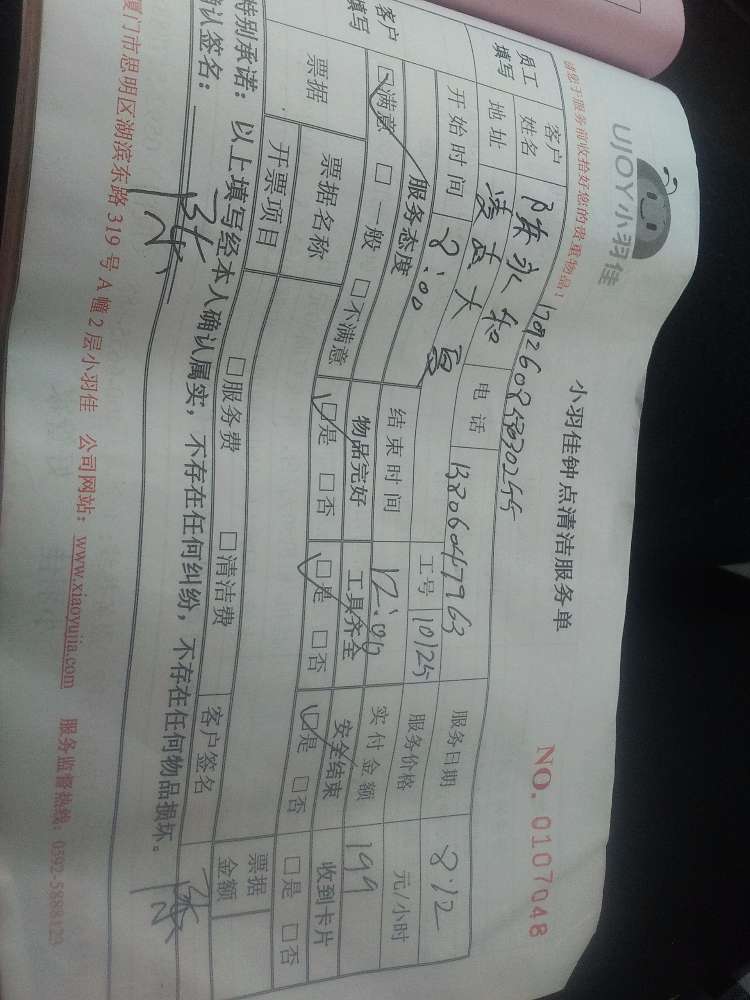 UJOY小羽佳
小羽佳钟点清洁服务单
NO. 0107048
请您于服务前收拾好您的贵重物品!
员工填写
客户姓名 陈永和
电话 13806047963
服务日期 8.12
地址
工号 10125
服务价格 元/小时
开始时间 8:00
结束时间 12:00
实付金额 199
客户填写
服务态度 物品完好 工具齐全 安全结束 收到卡片
☑满意 □一般 □不满意 ☑是 □否 ☑是 □否 ☑是 □否 □是 □否
票据
票据名称
票据金额
开票项目 □服务费 □清洁费 客户签名
特别承诺：以上填写经本人确认属实，不存在任何纠纷，不存在任何物品损坏。
确认签名：
厦门市思明区湖滨东路319号A幢2层小羽佳 公司网站：www.xiaoyujia.com 服务监督热线：0592-5688123